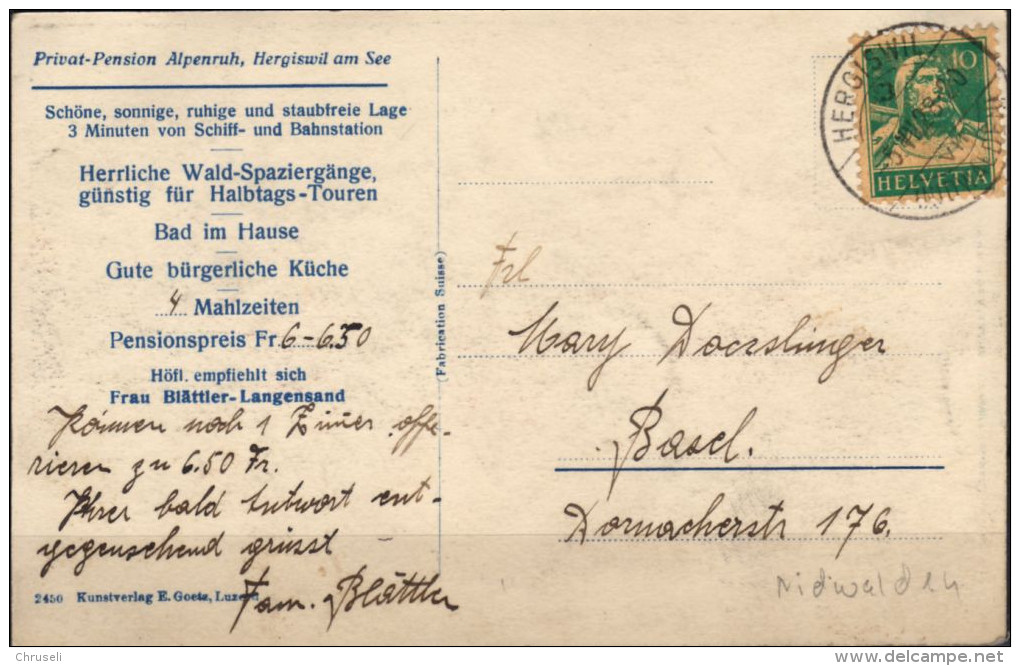 Privat-Pension Alpenruh, Hergiswil am See
Schöne, sonnige, ruhige und staubfreie Lage
3 Minuten von Schiff- und Bahnstation
Herrliche Wald-Spaziergänge,
günstig für Halbtags-Touren
Bad im Hause
Gute bürgerliche Küche
4 Mahlzeiten
Pensionspreis Fr. 6-6.50
Höfl. empfiehlt sich
Frau Blättler-Langensand
Können noch 1 Zimer offe-
rieren zu 6.50 Fr.
Ihrer bald Antwort ent-
gegensehend grüsst
Fam. Blättler
2450 Kunstverlag E. Goetz, Luzern
(Fabrication Suisse)
HERGISWIL
10
HELVETIA
Frl
Mary Doerslinger
Basel.
Dornacherstr 176.
Nidwalden
Chruseli